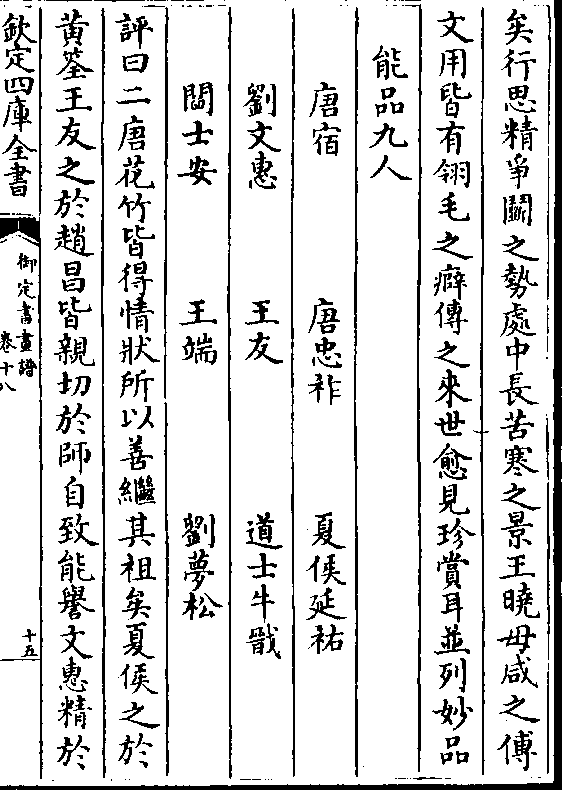 矣行思精爭鬬之勢處中長苦寒之景王曉毋咸之傳
文用皆有翎毛之癖傳之來世愈見珍賞耳並列妙品
能品九人
唐宿 唐忠祚 夏侯延祐
劉文惠 王友 道士牛戩
閻士安 王端 劉夢松
評曰二唐花竹皆得情狀所以善繼其祖矣夏侯之於
黃筌王友之於趙昌皆親切於師自致能譽文惠精於
欽定四庫全書
御定書畫譜
卷十八
十五